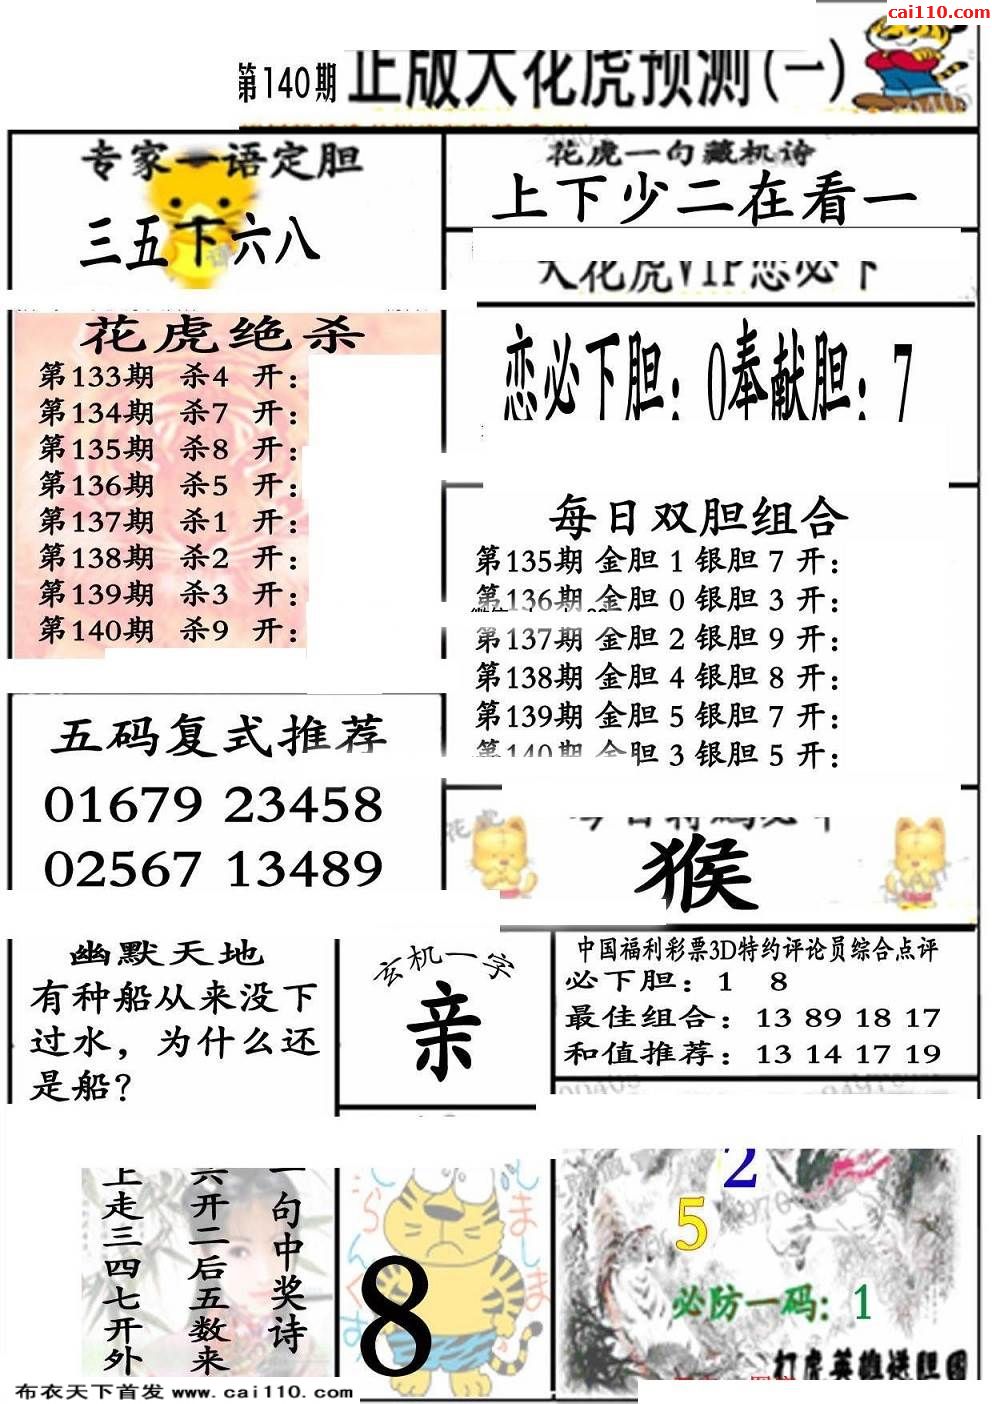 cai110.com
第140期 正版大花虎预测(一)
专家一语定胆
三五下六八
花虎一句藏机诗
上下少二在看一
大花虎VIP恋必下
恋必下胆：0奉献胆：7
花虎绝杀
第133期 杀4 开：
第134期 杀7 开：
第135期 杀8 开：
第136期 杀5 开：
第137期 杀1 开：
第138期 杀2 开：
第139期 杀3 开：
第140期 杀9 开：
每日双胆组合
第135期 金胆 1 银胆 7 开：
第136期 金胆 0 银胆 3 开：
第137期 金胆 2 银胆 9 开：
第138期 金胆 4 银胆 8 开：
第139期 金胆 5 银胆 7 开：
第140期 金胆 3 银胆 5 开：
五码复式推荐
01679 23458
02567 13489
猴
幽默天地
有种船从来没下
过水，为什么还
是船？
玄机一字
亲
中国福利彩票3D特约评论员综合点评
必下胆：1 8
最佳组合：13 89 18 17
和值推荐：13 14 17 19
一句中奖诗
六开二后五数来
上走三四七开外
8
2
5
必防一码：1
打虎英雄进胆图
布衣天下首发 www.cai110.com